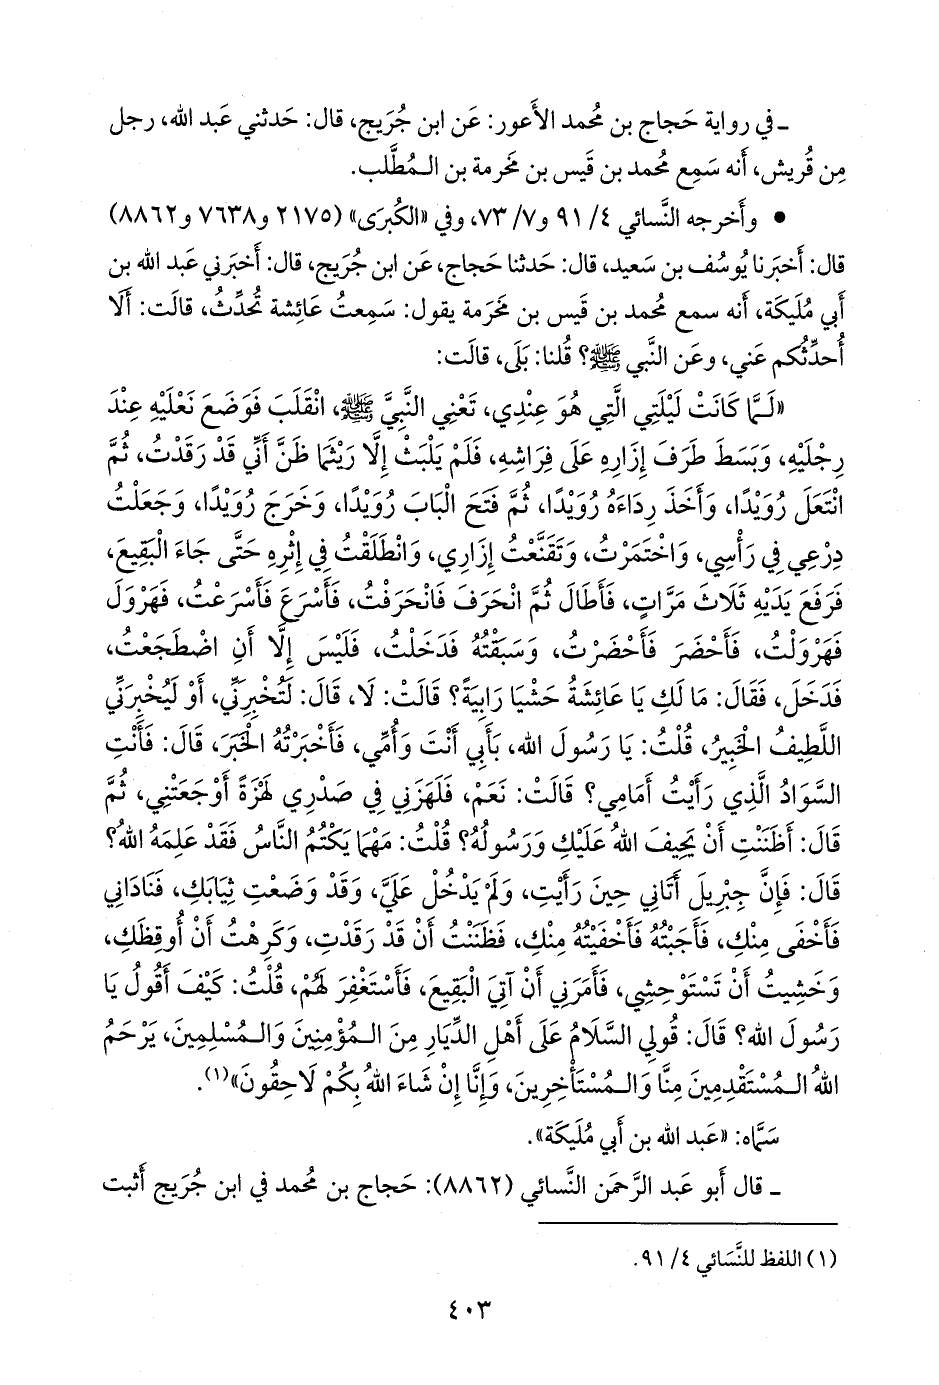 ـ في رواية حَجاج بن مُحمد الأَعور: عَن ابن جُرَيج، قال: حَدثني عَبد الله، رجل
مِن قُريش، أَنه سَمِع مُحمد بن قَيس بن مَخرمة بن المُطَّلب.
• وأَخرجه النَّسائي ٤/ ٩١ و٧/ ٧٣، وفي «الكُبرَى» (٢١٧٥ و٧٦٣٨ و٨٨٦٢)
قال: أَخبَرنا يُوسُف بن سَعيد، قال: حَدثنا حَجاج، عَن ابن جُرَيج، قال: أَخبَرني عَبد الله بن
أَبي مُلَيكَة، أَنه سمع مُحمد بن قَيس بن مَخرَمة يقول: سَمِعتُ عَائِشة تُحدِّثُ، قالَت: أَلَا
أُحدِّثُكم عَني، وعَن النَّبي ﷺ؟ قُلنا: بَلَى، قالَت:
«لَمَّا كَانَتْ لَيْلَتِي الَّتِي هُوَ عِنْدِي، تَعْنِي النَّبِيَّ ﷺ، انْقَلَبَ فَوَضَعَ نَعْلَيْهِ عِنْدَ
رِجْلَيْهِ، وَبَسَطَ طَرَفَ إِزَارِهِ عَلَى فِرَاشِهِ، فَلَمْ يَلْبَثْ إِلَّا رَيْثَمَا ظَنَّ أَنِّي قَدْ رَقَدْتُ، ثُمَّ
انْتَعَلَ رُوَيْدًا، وَأَخَذَ رِدَاءَهُ رُوَيْدًا، ثُمَّ فَتَحَ الْبَابَ رُوَيْدًا، وَخَرَجَ رُوَيْدًا، وَجَعَلْتُ
دِرْعِي فِي رَأْسِي، وَاخْتَمَرْتُ، وَتَقَنَّعْتُ إِزَارِي، وَانْطَلَقْتُ فِي إِثْرِهِ حَتَّى جَاءَ الْبَقِيعَ،
فَرَفَعَ يَدَيْهِ ثَلَاثَ مَرَّاتٍ، فَأَطَالَ ثُمَّ انْحَرَفَ فَانْحَرَفْتُ، فَأَسْرَعَ فَأَسْرَعْتُ، فَهَرْوَلَ
فَهَرْوَلْتُ، فَأَحْضَرَ فَأَحْضَرْتُ، وَسَبَقْتُهُ فَدَخَلْتُ، فَلَيْسَ إِلَّا أَنِ اضْطَجَعْتُ،
فَدَخَلَ، فَقَالَ: مَا لَكِ يَا عَائِشَةُ حَشْيَا رَابِيَةً؟ قَالَتْ: لَا، قَالَ: لَتُخْبِرِنِّي، أَوْ لَيُخْبِرَنِّي
اللَّطِيفُ الْخَبِيرُ، قُلْتُ: يَا رَسُولَ الله، بِأَبِي أَنْتَ وَأُمِّي، فَأَخْبَرْتُهُ الْخَبَرَ، قَالَ: فَأَنْتِ
السَّوَادُ الَّذِي رَأَيْتُ أَمَامِي؟ قَالَتْ: نَعَمْ، فَلَهَزَنِي فِي صَدْرِي لَهْزَةً أَوْجَعَتْنِي، ثُمَّ
قَالَ: أَظَنَنْتِ أَنْ يَحِيفَ اللهُ عَلَيْكِ وَرَسُولُهُ؟ قُلْتُ: مَهْمَا يَكْتُمُ النَّاسُ فَقَدْ عَلِمَهُ اللهُ؟
قَالَ: فَإِنَّ جِبْرِيلَ أَتَانِي حِينَ رَأَيْتِ، وَلَمْ يَدْخُلْ عَلَيَّ، وَقَدْ وَضَعْتِ ثِيَابَكِ، فَنَادَانِي
فَأَخْفَى مِنْكِ، فَأَجَبْتُهُ فَأَخْفَيْتُهُ مِنْكِ، فَظَنَنْتُ أَنْ قَدْ رَقَدْتِ، وَكَرِهْتُ أَنْ أُوقِظَكِ،
وَخَشِيتُ أَنْ تَسْتَوْحِشِي، فَأَمَرَنِي أَنْ آتِيَ الْبَقِيعَ، فَأَسْتَغْفِرَ لَهُمْ، قُلْتُ: كَيْفَ أَقُولُ يَا
رَسُولَ الله؟ قَالَ: قُولِي السَّلَامُ عَلَى أَهْلِ الدِّيَارِ مِنَ الْمُؤْمِنِينَ وَالْمُسْلِمِينَ، يَرْحَمُ
اللهُ الْمُسْتَقْدِمِينَ مِنَّا وَالْمُسْتَأْخِرِينَ، وَإِنَّا إِنْ شَاءَ اللهُ بِكُمْ لَاحِقُونَ»(١).
سَمَّاه: «عَبد الله بن أَبي مُلَيكَة».
ـ قال أَبو عَبد الرَّحمَن النَّسائي (٨٨٦٢): حَجاج بن مُحمد في ابن جُرَيج أَثبت
(١) اللفظ للنَّسَائي ٤/ ٩١.
٤٠٣